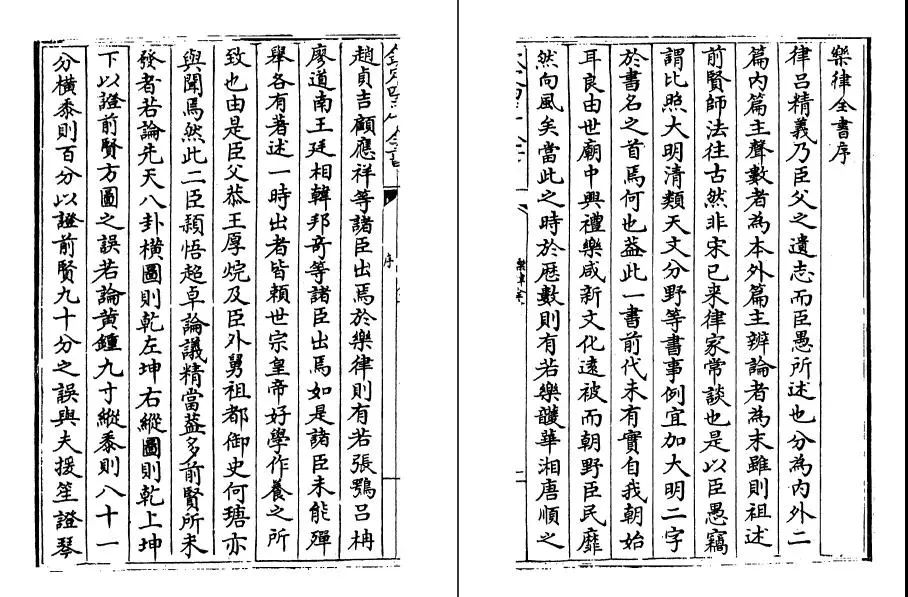 樂律全書序
律呂精義乃臣父之遺志而臣愚所述也分為内外二
篇内篇主聲數者為本外篇主辨論者為末雖則祖述
前賢師法往古然非宋已来律家常談也是以臣愚竊
謂比照大明清類天文分野等書事例宜加大明二字
於書名之首焉何也葢此一書前代未有實自我朝始
耳良由世廟中興禮樂咸新文化遠被而朝野臣民靡
然向風矣當此之時於厯數則有若樂頀華湘唐順之
序
趙貞吉顧應祥等諸臣出焉於樂律則有若張鶚吕柟
廖道南王廷相韓邦竒等諸臣出焉如是諸臣未能殫
舉各有著述一時出者皆頼世宗皇帝好學作養之所
致也由是臣父恭王厚烷及臣外舅祖都御史何瑭亦
與聞焉然此二臣穎悟超卓論議精當葢多前賢所未
發者若論先天八卦横圖則乾左坤右縱圖則乾上坤
下以證前賢方圖之誤若論黄鍾九寸縱黍則八十一
分横黍則百分以證前賢九十分之誤與夫援笙證琴